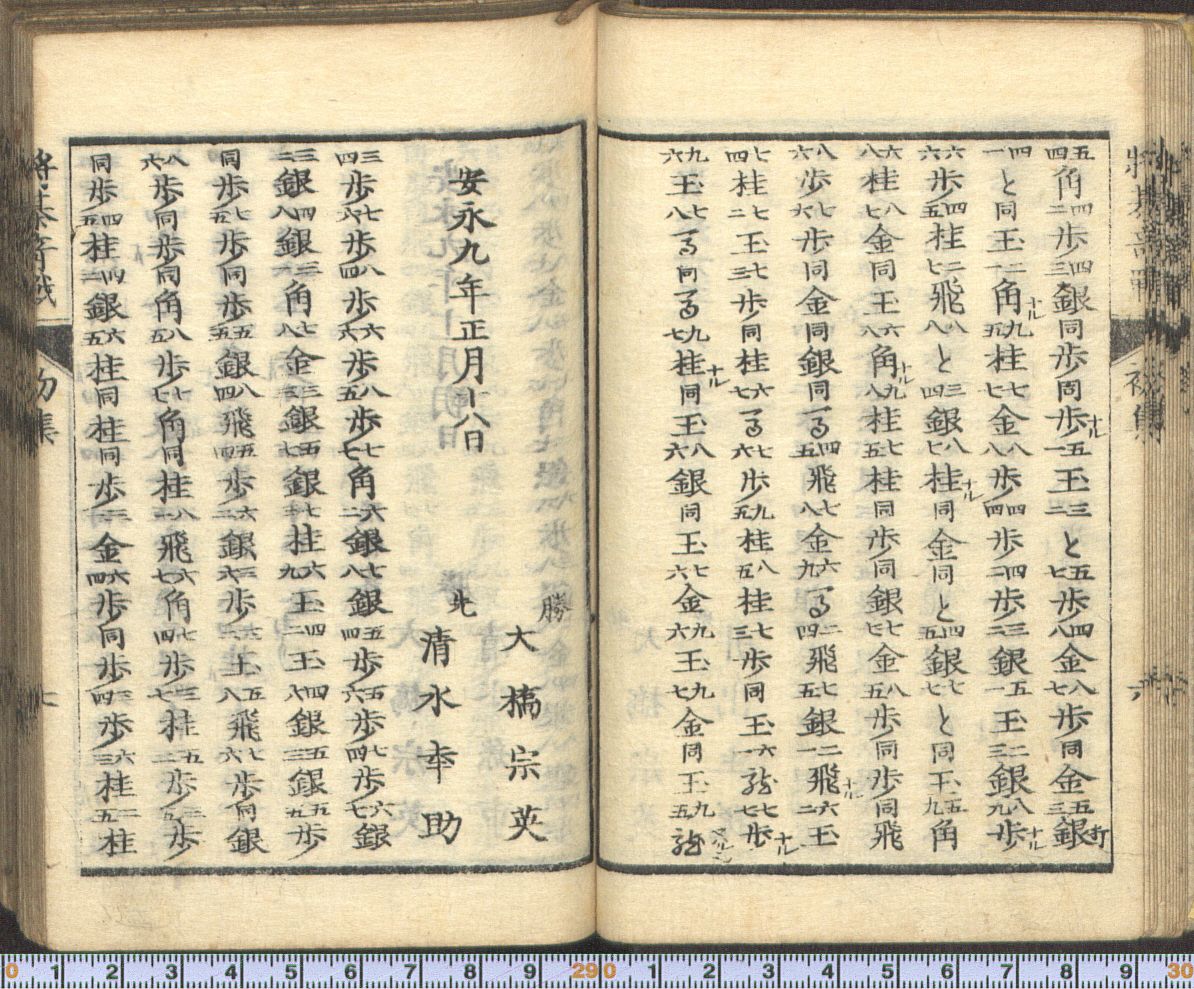 五四角四二歩四三銀同歩同歩ナル五一玉三二と五七歩四八金八七歩同金五三銀打
四一と同玉二一角ナル九五桂七七金八八歩四四歩四二歩三二銀五一玉二三銀八九歩ナル
六六歩四五桂二七飛八八と三四銀八七桂ナル同金同と四五銀七七と同玉五九角
六八桂八七金同玉六八角ナル九八桂七五桂同歩同銀七七金八五歩同歩同飛
八六歩七六歩同金同銀同馬四五飛七八金六九馬二四飛七五銀二一飛ナル六二玉
七四桂七二玉七三歩同桂六七馬七六歩九五桂八五桂七三歩同玉六一龍七七歩ナル
九六玉八馬同馬九七桂ナル同玉八六銀同玉七六金九六玉九七金同玉九五龍
安永九年正月十八日
勝 大橋宗英
先 清水奉助
三四歩七六歩八四歩六六歩八五歩七七角六二銀七八銀五四歩五六歩七四歩六七銀
三二銀四八銀三一角七八金三三銀五七銀桂六九玉四二玉四八銀五三銀五五歩
同歩七五歩同歩五五銀八四飛五四歩六二銀三六歩玉五八飛七六歩同銀
八六歩同歩同角八五歩七七角同桂八二飛六七角七四歩三七桂五二歩歩
同歩四五桂四二銀六五桂同桂同歩三二金六四歩同歩三四歩六三桂二五桂
初集